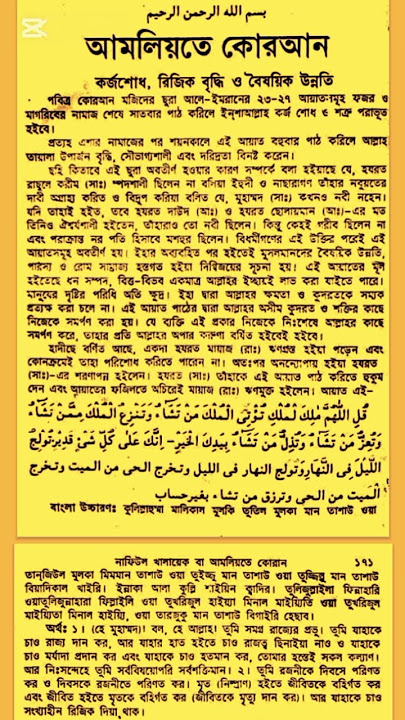 بسم الله الرحمن الرحيم
আমলিয়তে কোরআন
কর্জশোধ, রিজিক বৃদ্ধি ও বৈষয়িক উন্নতি
পবিত্র কোরআন মজিদের ছুরা আলে-ইমরানের ২৩-২৭ আয়াতসমূহ ফজর ও
মাগরিবের নামাজ শেষে সাতবার পাঠ করিলে ইনশাআল্লাহ কর্জ শোধ ও শত্রু পরাভূত
হইবে।
প্রত্যহ এশার নামাজের পর শয়নকালে এই আয়াত বহুবার পাঠ করিলে আল্লাহ
তায়ালা উপার্জন বৃদ্ধি, সৌভাগ্যশালী এবং দরিদ্রতা বিনষ্ট করেন।
ছহি কিতাবে এই ছুরা অবতীর্ণ হওয়ার কারণ সম্পর্কে বলা হইয়াছে যে, হযরত
রাছুলে করীম (সাঃ) সম্পদশালী ছিলেন না বলিয়া ইহুদী ও নাছারাগণ তাঁহার নবুয়তের
দাবী অগ্রাহ্য করিত ও বিদ্রুপ করিয়া বলিত যে, মুহাম্মদ (সাঃ) কখনও নবী নহেন।
যদি তাহাই হইত, তবে হযরত দাউদ (আঃ) ও হযরত ছোলায়মান (আঃ)-এর মত
তিনিও ঐশ্বর্যশালী হইতেন, তাঁহারাও তো নবী ছিলেন। কিন্তু কেহই গরীব ছিলেন না
এবং পরাক্রান্ত নর পতি হিসাবে মশহুর ছিলেন। বিধর্মীগণের এই উক্তির পরেই এই
আয়াতসমূহ অবতীর্ণ হয়। ইহার অব্যবহিত পর হইতেই মুসলমানদের বৈষয়িক উন্নতি,
পারস্য ও রোম সাম্রাজ্য হস্তগত হইয়া দিগ্বিজয়ের সূচনা হয়। এই আয়াতের মূল
হইতেছে ধন সম্পদ, বিত্ত-বিভব একমাত্র আল্লাহর ইচ্ছায়ই লাভ করা যাইতে পারে।
মানুষের দৃষ্টির পরিধি অতি ক্ষুদ্র। ইহা দ্বারা আল্লাহর ক্ষমতা ও কুদরতকে সম্যক
প্রত্যক্ষ করা চলে না। এই আয়াত পাঠের দ্বারা আল্লাহর অসীম কুদরত ও শক্তির কাছে
নিজেকে সমর্পণ করা হয়। যে ব্যক্তি এই প্রকার নিজেকে নিঃশেষে আল্লাহর কাছে
সমর্পণ করে, তাহার প্রতি আল্লাহর অপার করুণা বর্ষিত হইবেই হইবে।
হাদীছে বর্ণিত আছে, একদা হযরত মায়াজ (রাঃ) ঋণগ্রস্ত হইয়া পড়েন এবং
কোনক্রমেই তাহা পরিশোধ করিতে পারেন না। অতঃপর অনন্যোপায় হইয়া হযরত
(সাঃ)-এর শরণাপন্ন হইলেন। হযরত (সাঃ) তাঁহাকে এই আয়াত পাঠ করিতে হুকুম
দেন এবং আয়াতের ফজিলতে অচিরেই মায়াজ (রাঃ) ঋণমুক্ত হইলেন। আয়াত এই-
قُلِ اللّٰهُمَّ مٰلِكَ الْمُلْكِ تُؤْتِى الْمُلْكَ مَنْ تَشَآءُ وَتَنْزِعُ الْمُلْكَ مِمَّنْ تَشَآءُ
وَتُعِزُّ مَنْ تَشَآءُ وَتُذِلُّ مَنْ تَشَآءُ بِيَدِكَ الْخَيْرُ- اِنَّكَ عَلٰى كُلِّ شَىْءٍ قَدِيْرٌ تُوْلِجُ
الَّيْلَ فِى النَّهَارِ وَتُوْلِجُ النهار فى الليل وتخرج الحى من الميت وتخرج
الميت من الحى وترزق من تشاء بغيرحساب
বাংলা উচ্চারণঃ কুলিল্লাহুম্মা মালিকাল মুলকি তূতিল মুলকা মান তাশাউ ওয়া
নাফিউল খালায়েক বা আমলিয়তে কোরান ১৭১
তানজিউল মুলকা মিমমান তাশাউ ওয়া তুইজ্জু মান তাশাউ ওয়া তুজ্জিলু মান তাশাউ
বিয়াদিকাল খাইরি। ইন্নাকা আলা কুল্লি শাইয়িন ক্বাদির। তুলিজুল্লাইলা ফিন্নাহারি
ওয়াতুলিজুন্নাহারা ফিল্লাইলি ওয়া তুখরিজুল হাইয়্যা মিনাল মাইয়্যিতি ওয়া তুখরিজুল
মাইয়্যিতা মিনাল হাইয়্যি, ওয়া তারজুকু মান তাশাউ বিগাইরি হেছাব।
অর্থঃ ১। (হে মুহাম্মদ)। বল, হে আল্লাহ! তুমি সমগ্র রাজ্যের প্রভু। তুমি যাহাকে
চাও রাজ্য দান কর, আর যাহার হাত হইতে চাও রাজত্ব ছিনাইয়া নাও ও যাহাকে
চাও মর্যাদা প্রদান কর এবং যাহাকে চাও হতমান কর, তোমার হাতেই সকল কল্যাণ।
আর নিঃসন্দেহে তুমি সর্ববিষয়োপরি সর্বশক্তিমান। ২। তুমি রজনীকে দিবসে পরিণত
কর ও দিবসকে রজনীতে পরিণত কর। মৃত (নিষ্প্রাণ) হইতে জীবিতকে বহির্গত কর
এবং জীবিত হইতে মৃতকে বহির্গত কর (জীবিতকে মৃত্যু দান কর)। আর যাহাকে চাও
সংখ্যাহীন রিজিক দিয়া থাক।